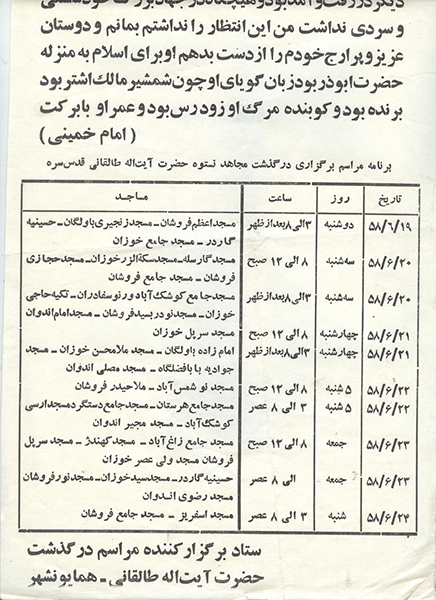 دیگر در رفت و آمد بود و هیچگاه در جهاد بزرگ خود سستی
و سردی نداشت من این انتظار را نداشتم بمانم و دوستان
عزیز و پر ارج خودم را از دست بدهم او برای اسلام به منزله
حضرت ابوذر بود زبان گویای او چون شمشیر مالک اشتر بود
برنده بود و کوبنده مرگ او زودرس بود و عمر او با برکت
( امام خمینی )
برنامه مراسم برگزاری درگذشت مجاهد نستوه حضرت آیت‌اله طالقانی قدس‌سره
تاریخ روز ساعت مساجد
۵۸/۶/۱۹ دوشنبه ۳ الی ۸ بعدازظهر مسجد اعظم فروشان ـ مسجد زنجیری باولگان ـ حسینیه
گاردر ـ مسجد جامع خوزان
۵۸/۶/۲۰ سه‌شنبه ۸ الی ۱۲ صبح مسجد گارسله ـ مسجد سکة‌الزر خوزان ـ مسجد حجازی
فروشان ـ مسجد جامع فروشان
۵۸/۶/۲۰ سه‌شنبه ۳ الی ۸ بعدازظهر مسجد جامع کوشک آباد ورنوسفادران ـ تکیه حاجی
خوزان ـ مسجد نو در بسید فروشان ـ مسجد امام اندوان
۵۸/۶/۲۱ چهارشنبه ۸ الی ۱۲ صبح مسجد سرپل خوزان
۵۸/۶/۲۱ چهارشنبه ۳ الی ۸ بعدازظهر امام زاده باولگان ـ مسجد ملامحسن خوزان ـ مسجد
جوادیه بابافضلگاه ـ مسجد مصلی اندوان
۵۸/۶/۲۲ ۵ شنبه ۸ الی ۱۲ صبح مسجد نو شمس‌آباد ـ ملاحیدر فروشان
۵۸/۶/۲۲ ۵ شنبه ۳ الی ۸ عصر مسجد جامع هرستان ـ مسجد جامع دستگرد مسجد ارسی
کوشک‌آباد ـ مسجد مجیر اندوان
۵۸/۶/۲۳ جمعه ۸ الی ۱۲ صبح مسجد جامع زاغ‌آباد ـ مسجد کهندژ ـ مسجد سرپل
فروشان مسجد ولی عصر خوزان
۵۸/۶/۲۳ جمعه الی ۸ عصر حسینیه گاردر ـ مسجد سید خوزان ـ مسجد نور فروشان
مسجد رضوی اندوان
۵۸/۶/۲۴ شنبه ۳ الی ۸ عصر مسجد اسفریز ـ مسجد جامع فروشان
ستاد برگزار کننده مراسم درگذشت
حضرت آیت‌اله طالقانی ـ همایونشهر